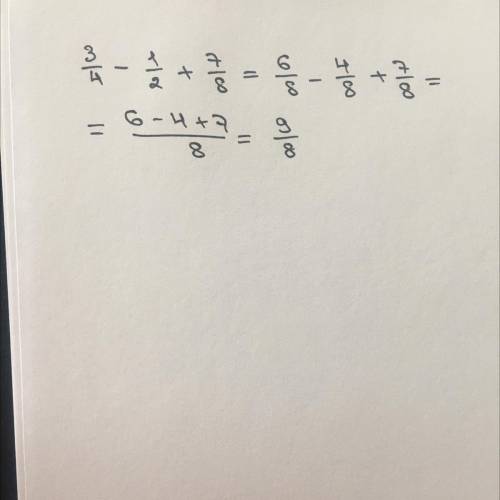 3/4 - 1/2 + 7/8 = 6/8 - 4/8 + 7/8 =
= (6 - 4 + 7)/8 = 9/8